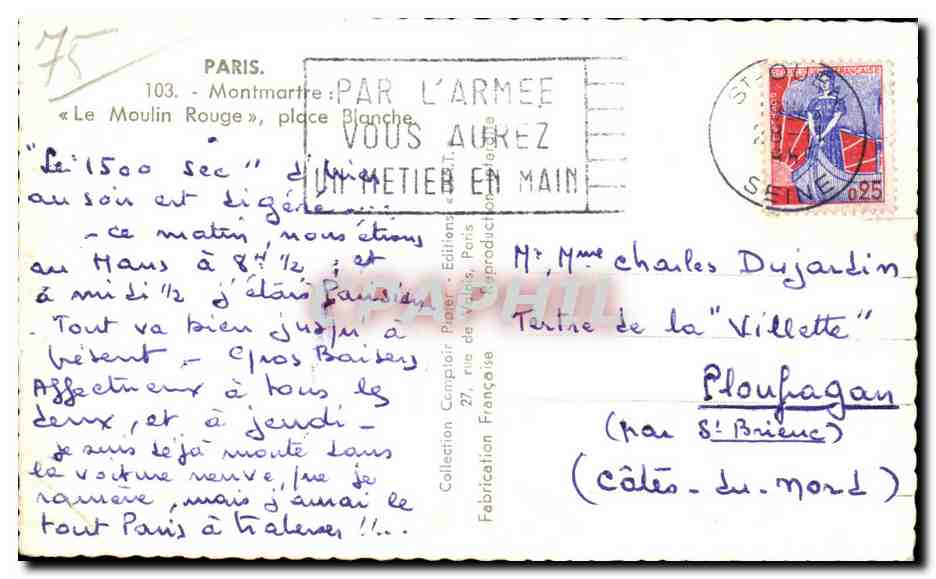 75
PARIS.
103. - Montmartre :
« Le Moulin Rouge », place Blanche
PAR L'ARMÉE
VOUS AUREZ
UN METIER EN MAIN
SEINE
FRANÇAISE
0,25
"Le 1500 sec" d'hier
au soir est digéré....
- ce matin, nous étions
au Mans à 8H 1/2, et
à midi 1/2 j'étais Parisien
- Tout va bien jusqu'à
présent - Gros Baisers
Affectueux à tous les
deux, et à jeudi -
je suis déjà monté dans
la voiture neuve, que je
ramène, mais j'aurai le
tout Paris à traverser !!...
Collection Comptoir - Editions
27, rue de Valois, Paris
Fabrication Française Reproduction interdite
CPAPHIL
Mr, Mme Charles Dujardin
Tertre de la "Villette"
Ploufragan
(par St Brieuc)
(Côtes-du-Nord)